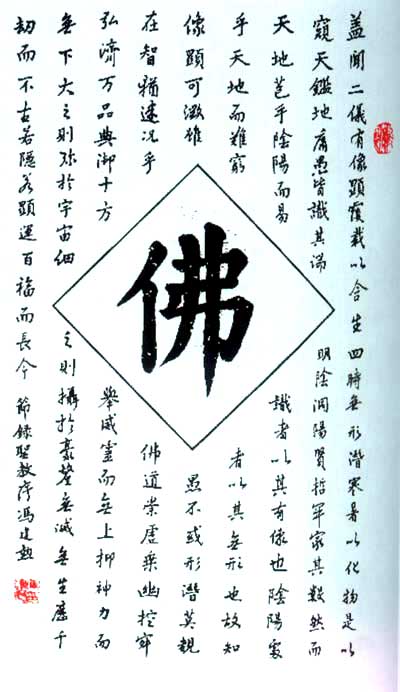 盖聞二儀有像顯覆載以含生四時無形潛寒暑以化物是以
窺天鑑地庸愚皆識其端明陰洞陽賢哲罕窮其數然而
天地苞乎陰陽而易識者以其有像也陰陽處
乎天地而難窮者以其無形也故知
像顯可徵雖愚不惑形潛莫覩
在智猶迷况乎佛道崇虛乘幽控寂
弘濟万品典御十方舉威靈而無上抑神力而
無下大之則弥於宇宙細之則攝於豪釐無滅無生歷千
劫而不古若隱若顯運百福而長今 節錄聖教序馮建
佛